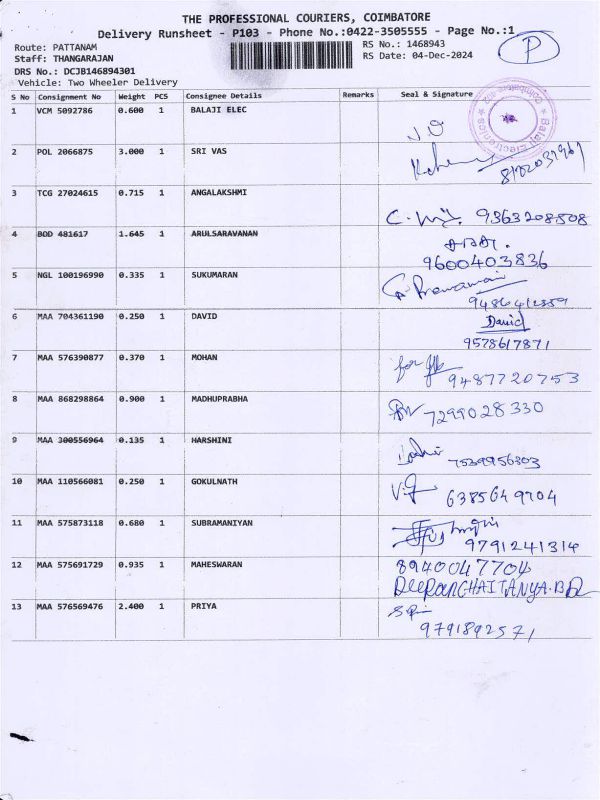 THE PROFESSIONAL COURIERS, COIMBATORE
Delivery Runsheet - P103 - Phone No.:0422-3505555 - Page No.:1
P
Route: PATTANAM
RS No.: 1468943
Staff: THANGARAJAN
RS Date: 04-Dec-2024
DRS No.: DCJB146894301
Vehicle: Two Wheeler Delivery
S No Consignment No Weight PCS Consignee Details Remarks Seal & Signature
1 VCM 5092786 0.600 1 BALAJI ELEC
Balaji Electronics
2 POL 2066875 3.000 1 SRI VAS
3 TCG 27024615 0.715 1 ANGALAKSHMI
9363208508
4 BDD 481617 1.645 1 ARULSARAVANAN
9600403836
5 NGL 100196990 0.335 1 SUKUMARAN
6 MAA 704361190 0.250 1 DAVID
David
9578617871
7 MAA 576390877 0.370 1 MOHAN
9487720753
8 MAA 868298864 0.900 1 MADHUPRABHA
7299028330
9 MAA 300556964 0.135 1 HARSHINI
7539956303
10 MAA 110566081 0.250 1 GOKULNATH
6385649704
11 MAA 575873118 0.680 1 SUBRAMANIYAN
9791241314
12 MAA 575691729 0.935 1 MAHESWARAN
8940047704
13 MAA 576569476 2.400 1 PRIYA
9791892571